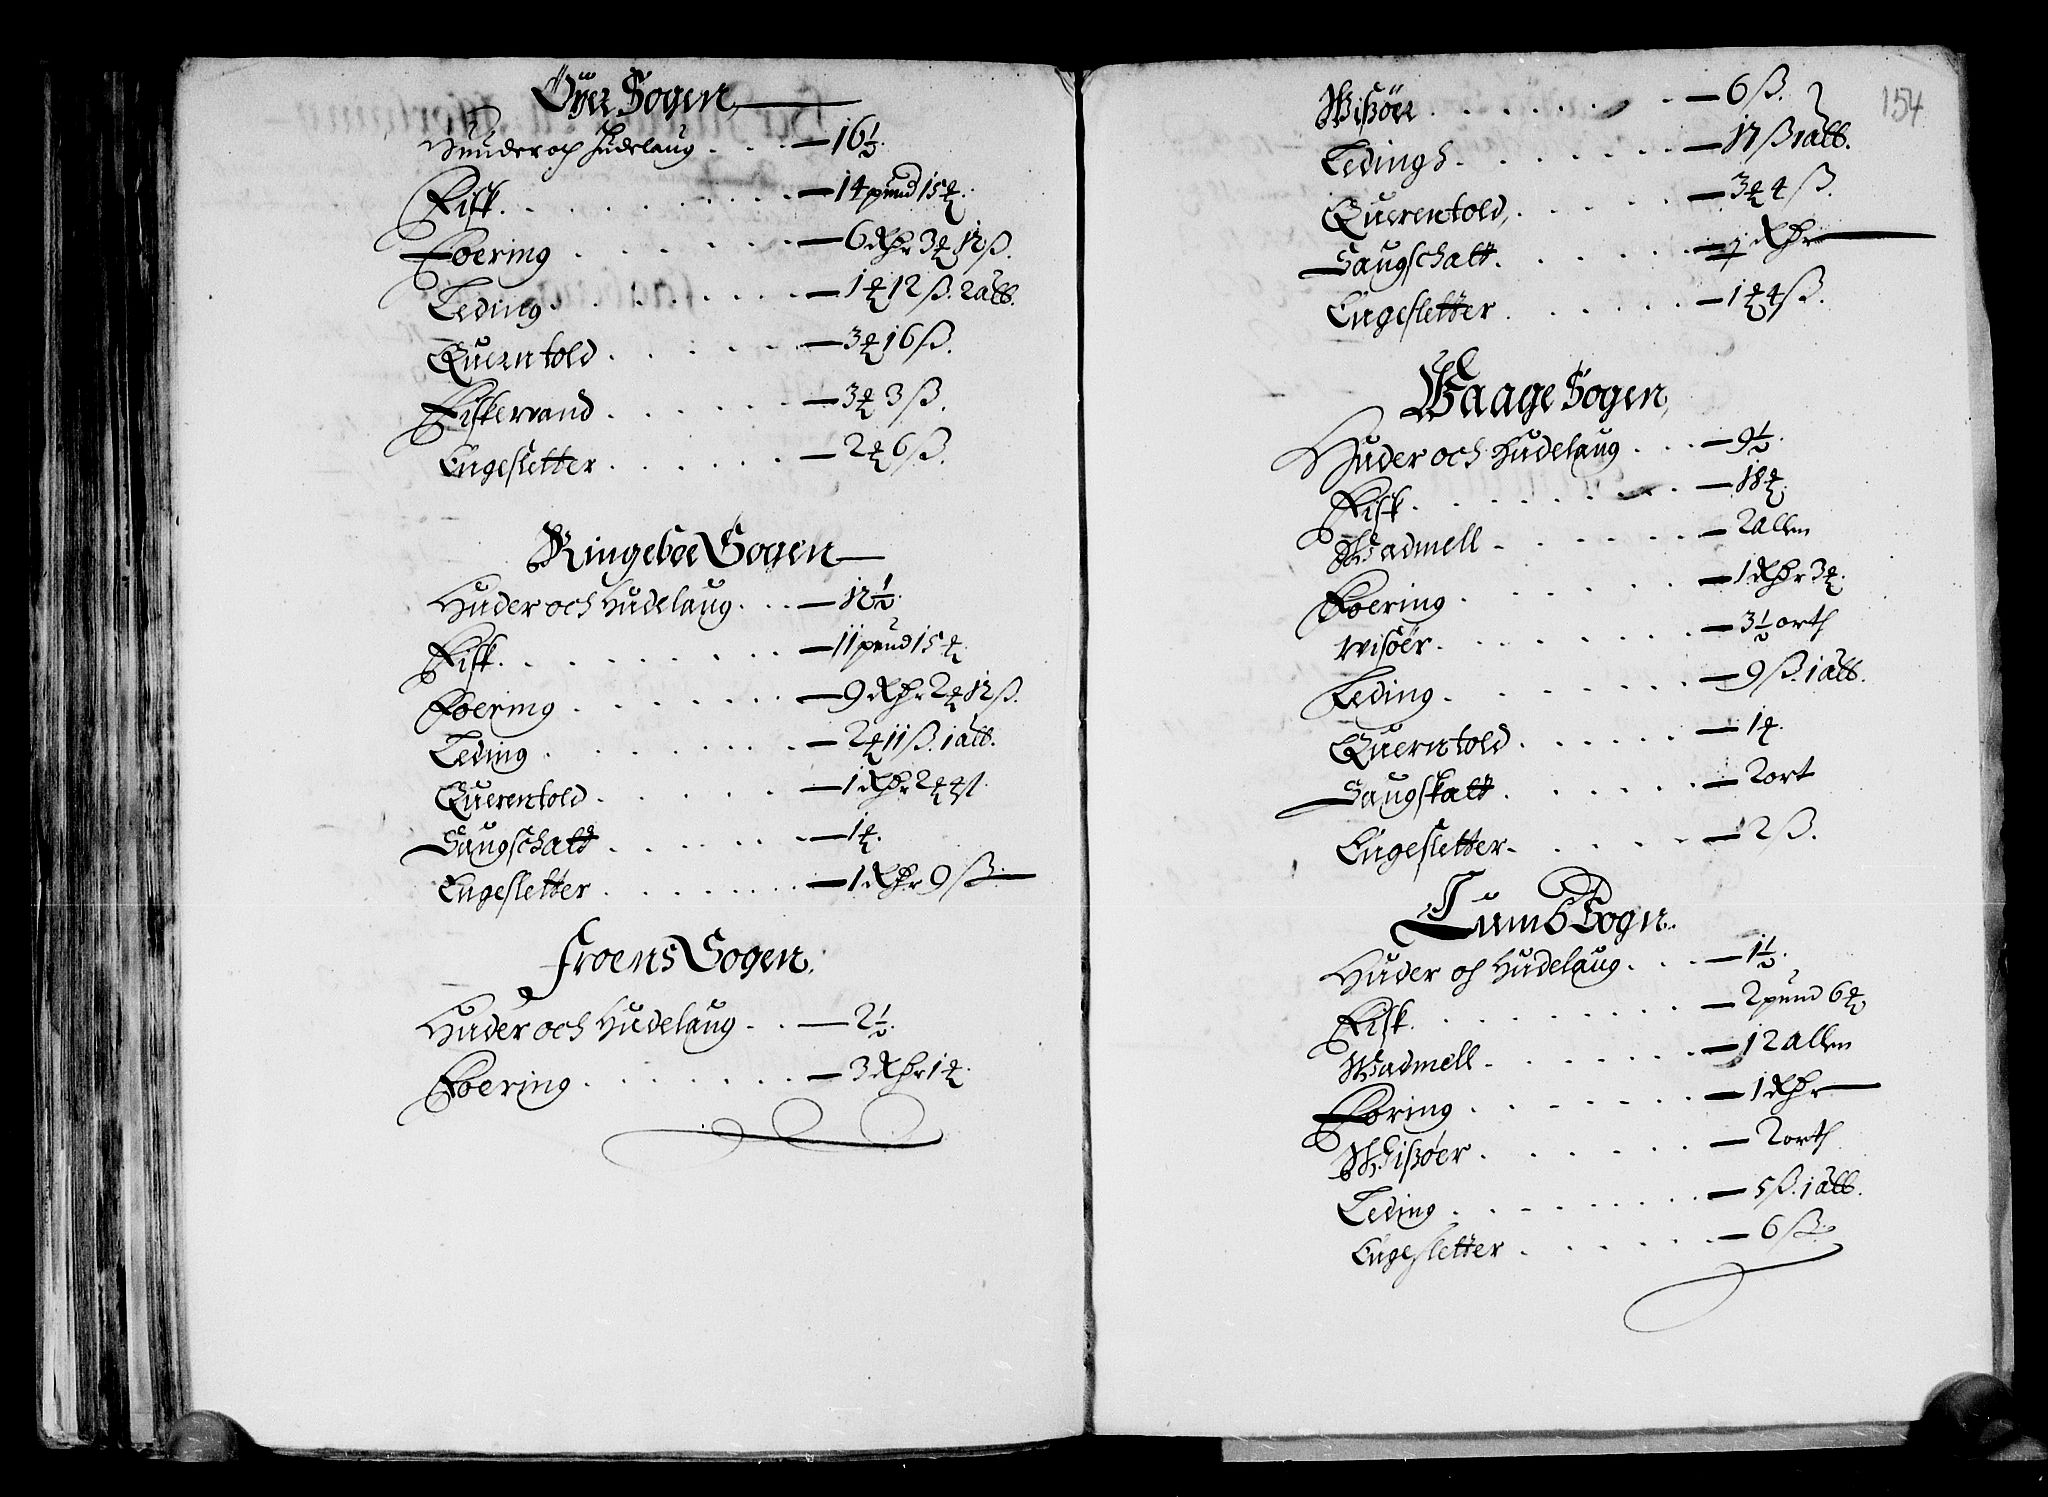 Öyer Sogen
Huuder och Hudelaug . . . 16½.
Fisk. . . . . . . . . 14 pund 15 ℔.
Foering . . . . . . 6 Rhr 3 ℔ 12 ß.
Leding . . . . . . 1 ℔ 12 ß. 2 alb.
Querntold . . . . . 3 ℔ 16 ß.
Fiskevand . . . . . 3 ℔ 3 ß.
Engesletter . . . . . 2 ℔ 6 ß.
Ringeboe Sogen
Huder och Hudelaug . . . 12½.
Fisk. . . . . . . . . 11 pund 15 ℔.
Foering . . . . . . 9 Rhr 2 ℔ 12 ß.
Leding . . . . . . . 2 ℔ 11 ß. 1 alb.
Querentold . . . . . 1 Rhr 2 ℔ 4 ß.
Saugschatt . . . . . . 1 ℔.
Engesletter . . . . . . . 1 Rhr 9 ß.
Froens Sogen.
Huder och Hudelaug . . 2½.
Foering . . . . . . . 3 Rhr 1 ℔.
154
Wißöer . . . . . . . 6 ß.
Ledingh . . . . . . . 17 ß 1 alb.
Querentold, . . . . . 3 ℔ 4 ß.
Saugschatt. . . . . . 1 Rhr
Engesletter . . . . . 1 ℔ 4 ß.
Waage Sogen,
Huder och Hudelaug . . . 9½.
Fisk . . . . . . . . 18 ℔.
Wadmell . . . . . . 2 allen
Foering . . . . . . 1 Rhr 3 ℔.
wisöer . . . . . . . 3½ orth
Leding . . . . . . . 9 ß. 1 alb.
Querntold . . . . . . 1 ℔.
Saugskatt . . . . . . 2 ort
Engesletter . . . . . 2 ß.
Lumb Sogn.
Huder och Hudelaug . . . 1½.
Fisk. . . . . . . . . 2 pund 6 ℔
Wadmell . . . . . . 12 allen
Foring . . . . . . . 1 Rhr
Wißøer . . . . . . 2 orth
Leding . . . . . . . 5 ß. 1 alb.
Engesletter . . . . . . 6 ß.